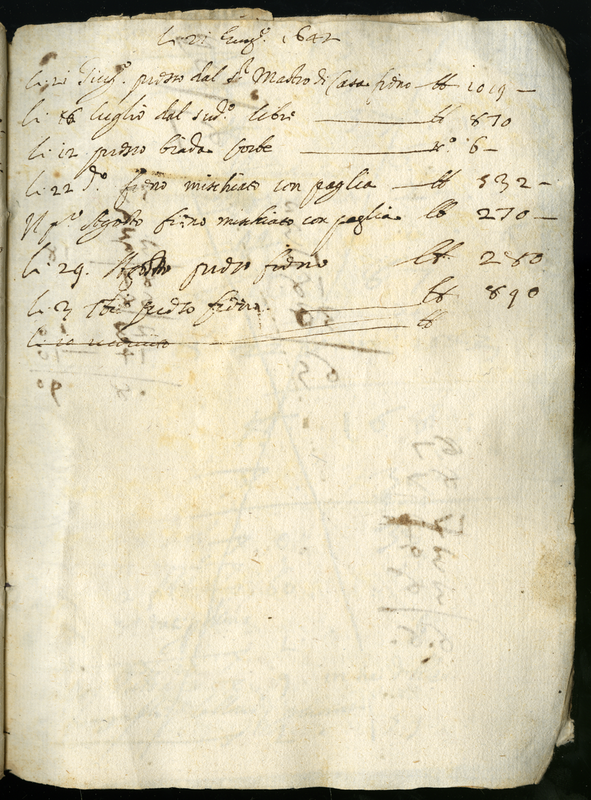 li 21 Giug.º 1642
li 21 Giug.º preso dal S.r Mastro di Casa fieno — lb 1019 —
li 8 luglio dal sud.º libre — lb 870
li 12 preso biada corbe — n.º 6 —
li 22 d.º fieno mischiato con paglia — lb 532 —
Il p.º Agosto fieno mischiato con paglia lb 270 —
li 29. Agosto preso fieno lb 280
li 3 7bre preso fieno. — lb 890
li 10 — lb